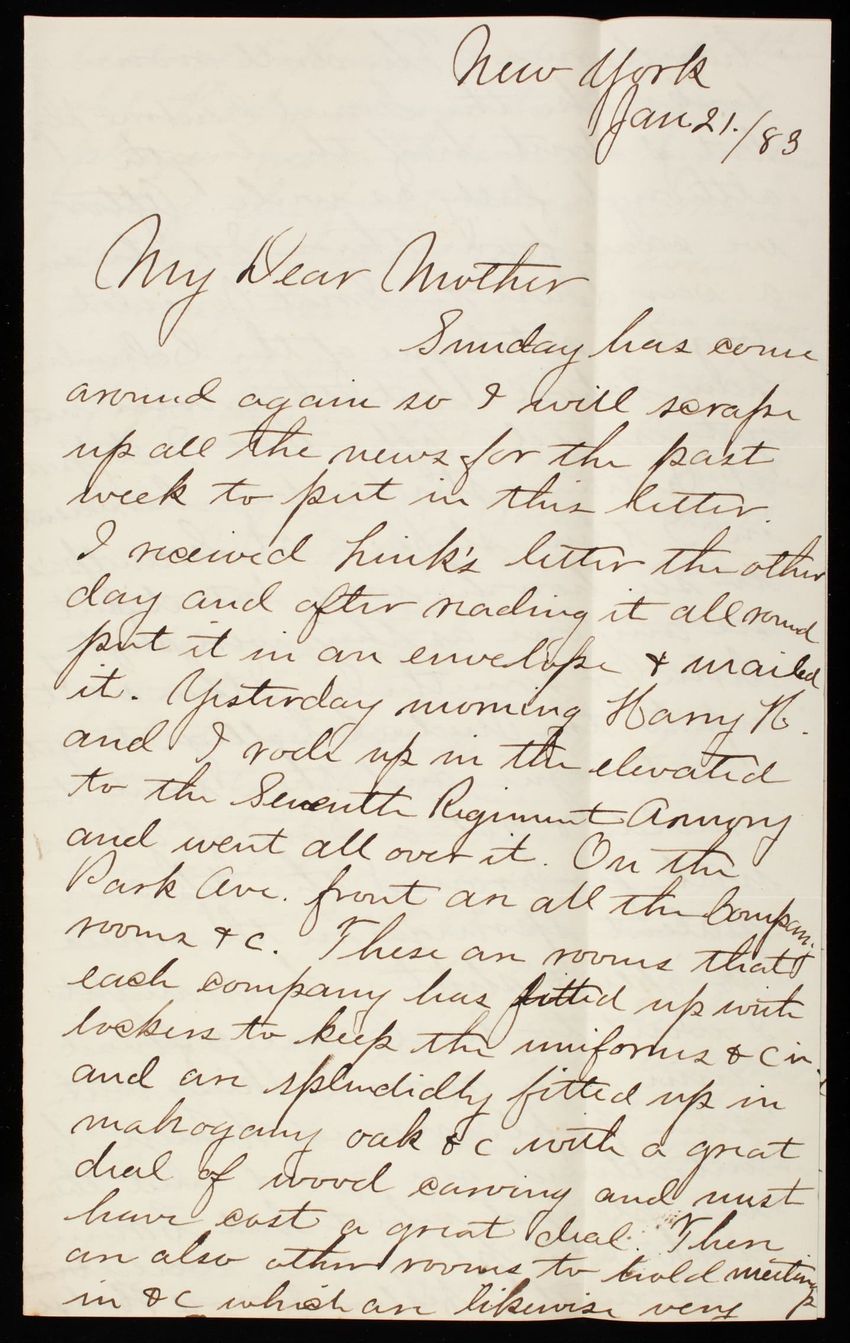 New York
Jan 21./83
My Dear Mother
Sunday has come
around again so I will scrape
up all the news for the past
week to put in this letter.
I received Link's letter the other
day and after reading it all round
put it in an envelope & mailed
it. Yesterday morning Harry K.
and I rode up in the elevated
to the Seventh Regiment Armory
and went all over it. On the
Park Ave. front are all the Company
rooms & c. These are rooms that
each company has fitted up with
lockers to keep the uniforms & c in
and are splendidly fitted up in
mahogany oak & c with a great
deal of wood carving and must
have cost a great deal. There
are also other rooms to hold meetings
in & c which are likewise very